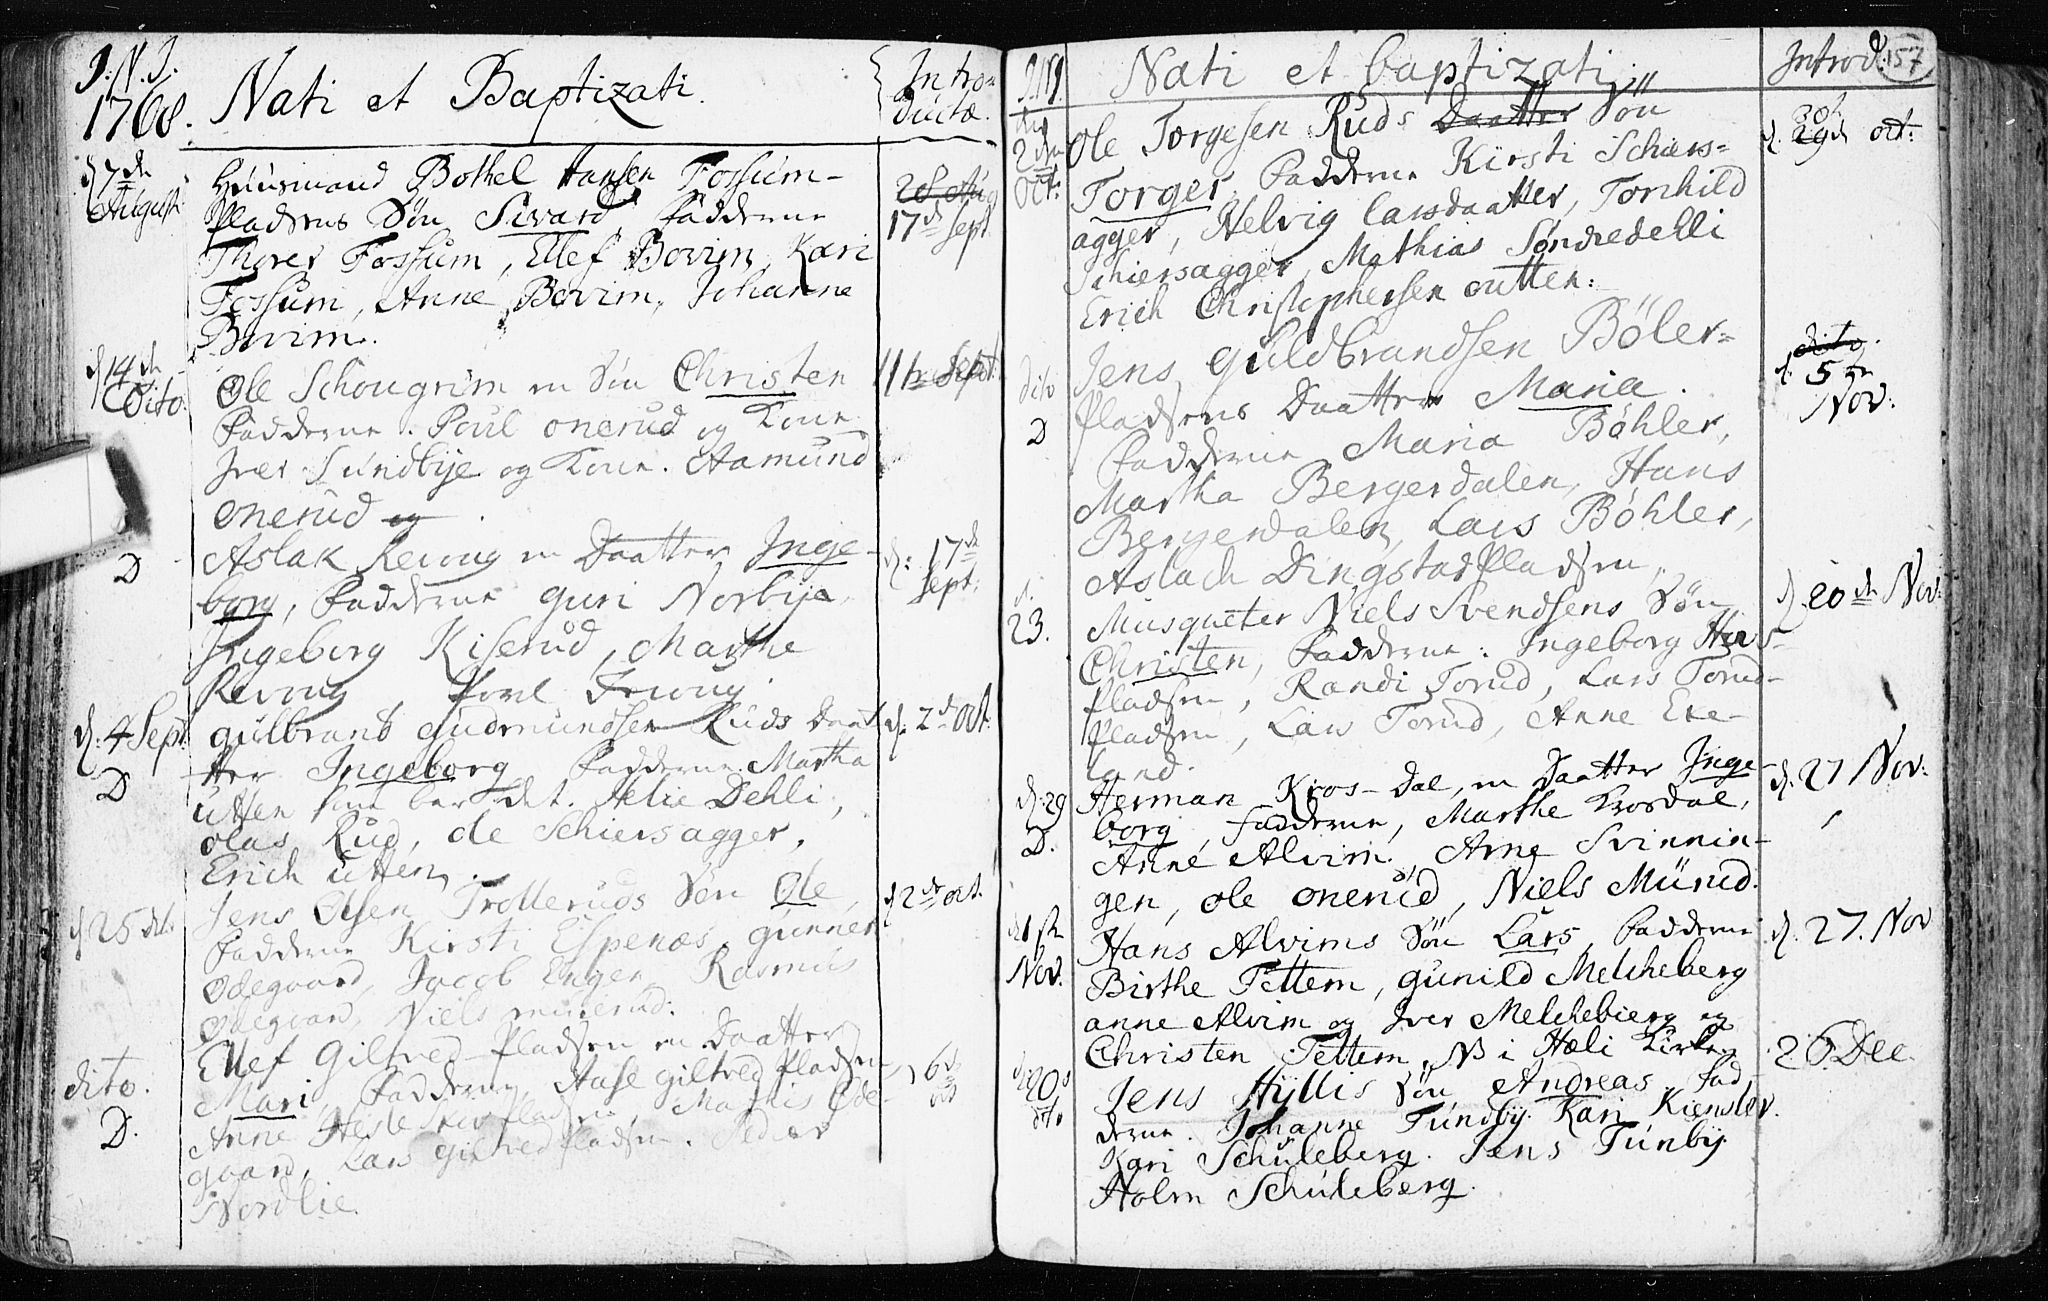 J. N. J.
1768. Nati et Baptizati.
Intro=
ductæ.
d 7de
August:
Huusmand Bothel Hansen Fossum-
Pladsens Søn Sivard Fadderne
Thorer Fossum, Ellef Bovim, Kari
Fossum, Anne Bovim, Johanne
Bovim.
28 Aug
17de Sept.
d 14de
Dito.
Ole Schougrim en Søn Christen
Fadderne. Poul Onerud og Kone
Iver Sundbye og Kone. Aamund
Onerud og
11te Sept:
D
Aslak Revoug en Daatter Inge-
borg, Fadderne Guri Norbye,
Ingeborg Kiserud, Marthe
Revoug
d: 17de
Sept:
d: 4 Sept:
D
Gulbrand Gudmundsen Ruds Daat
ter Ingeborg Fadderne Martha
Utten bar det. Helie Dehli,
Olas Rud, Ole Schiersagger,
Erich Utten.
d: 2d Oct.
d 25 dito
Jens Olsen Trolleruds Søn Ole,
Fadderne Kirsti Espenæs, Gunner
Ødegaard, Jacob Enger, Rasmus
Ødegaard, Niels Munerud.
d 2de Oct.
dito.
D.
Ellef Giltved-Pladsen en Daatter
Mari, Fadderne, Aase Giltved Pladsen,
Anne Pladsen, Mathis Øde-
gaard, Lars Giltved Pladsen. Peder
Nordlie.
157
Nati et baptizati
Introd.
2den
Oct:
Ole Torgesen Ruds Daatter Søn
Torger. Fadderne Kirsti Schiers=
agger, Helvig Larsdaatter, Tornhild
Schiersagger, Mathias Søndredehli
Erich Christophersen Outten:
d. 29d Oct:
30d
dito
D
Jens Guldbrandsen Böler=
Pladsens Daatter Maria.
Fadderne Maria Böhler,
Martha Bergerdalen, Hans
Bergerdalen, Lars Böhler,
Aslach Dingstad Pladsen,
dito.
d. 5te
Nov:
d.
23.
Musqueter Niels Svendsens Søn
Christen, Fadderne: Ingeborg
Pladsen, Randi Torud, Lars Torud-
Pladsen, Lars Torud, Anne Exe-
lund.
d. 20de Nov:
d. 29
D.
Herman Kros-Dal, en Daatter Inge-
borg, Fadderne, Marthe Krosdal,
Anne Alvim, Arne Svinnin-
gen, Ole Onerud, Niels Munrud.
d. 27 Nov:
Nov.
Hans Alvims Søn Lars, Fadderne
Birthe Tettem, Gunild Melcheberg
Anne Alvim og Iver Melchebierg og
Christen Tettem, NB i Holi Kirke
d. 27. Nov
d 20d
dito
Jens Hyllis Søn Andreas Fad
derne. Johanne Tundby. Kari Kiensler.
Kari Schuleberg. Jens Tunby
Holm Schuleberg.
26. Dec.